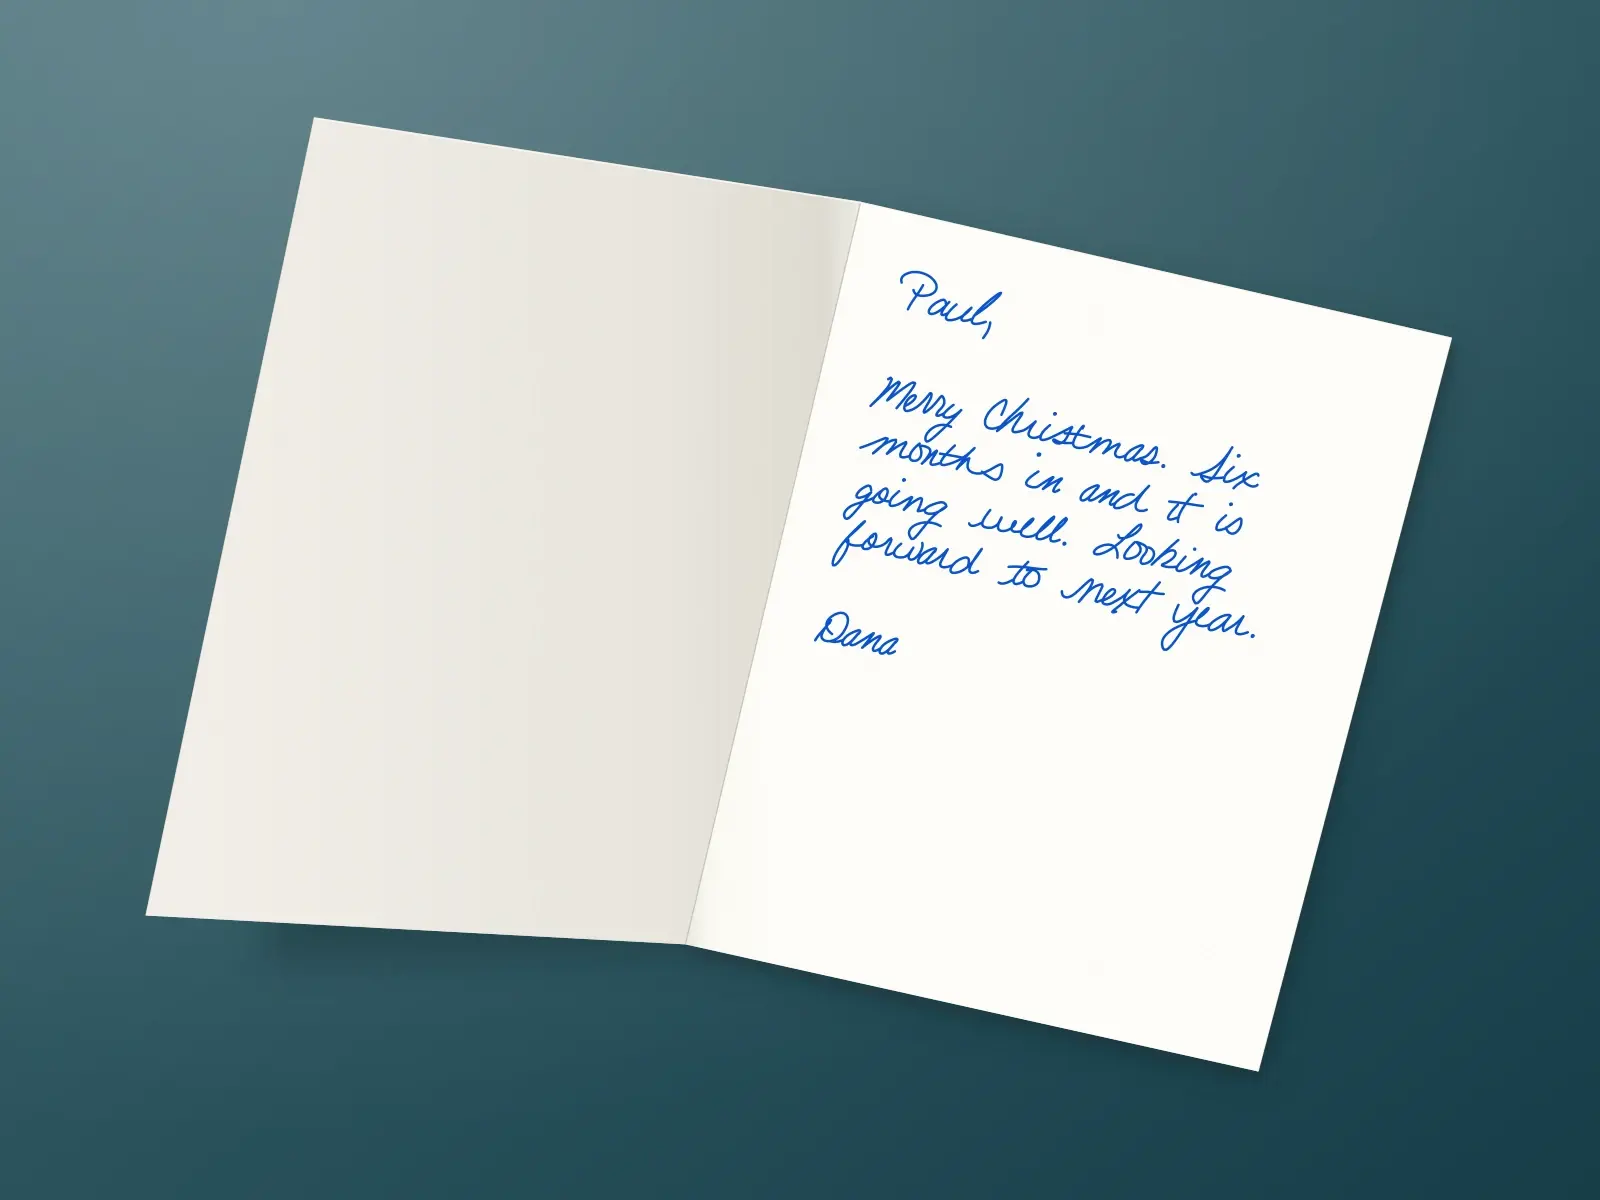 Paul,
Merry Christmas. Six
months in and it is
going well. Looking
forward to next year.
Dana